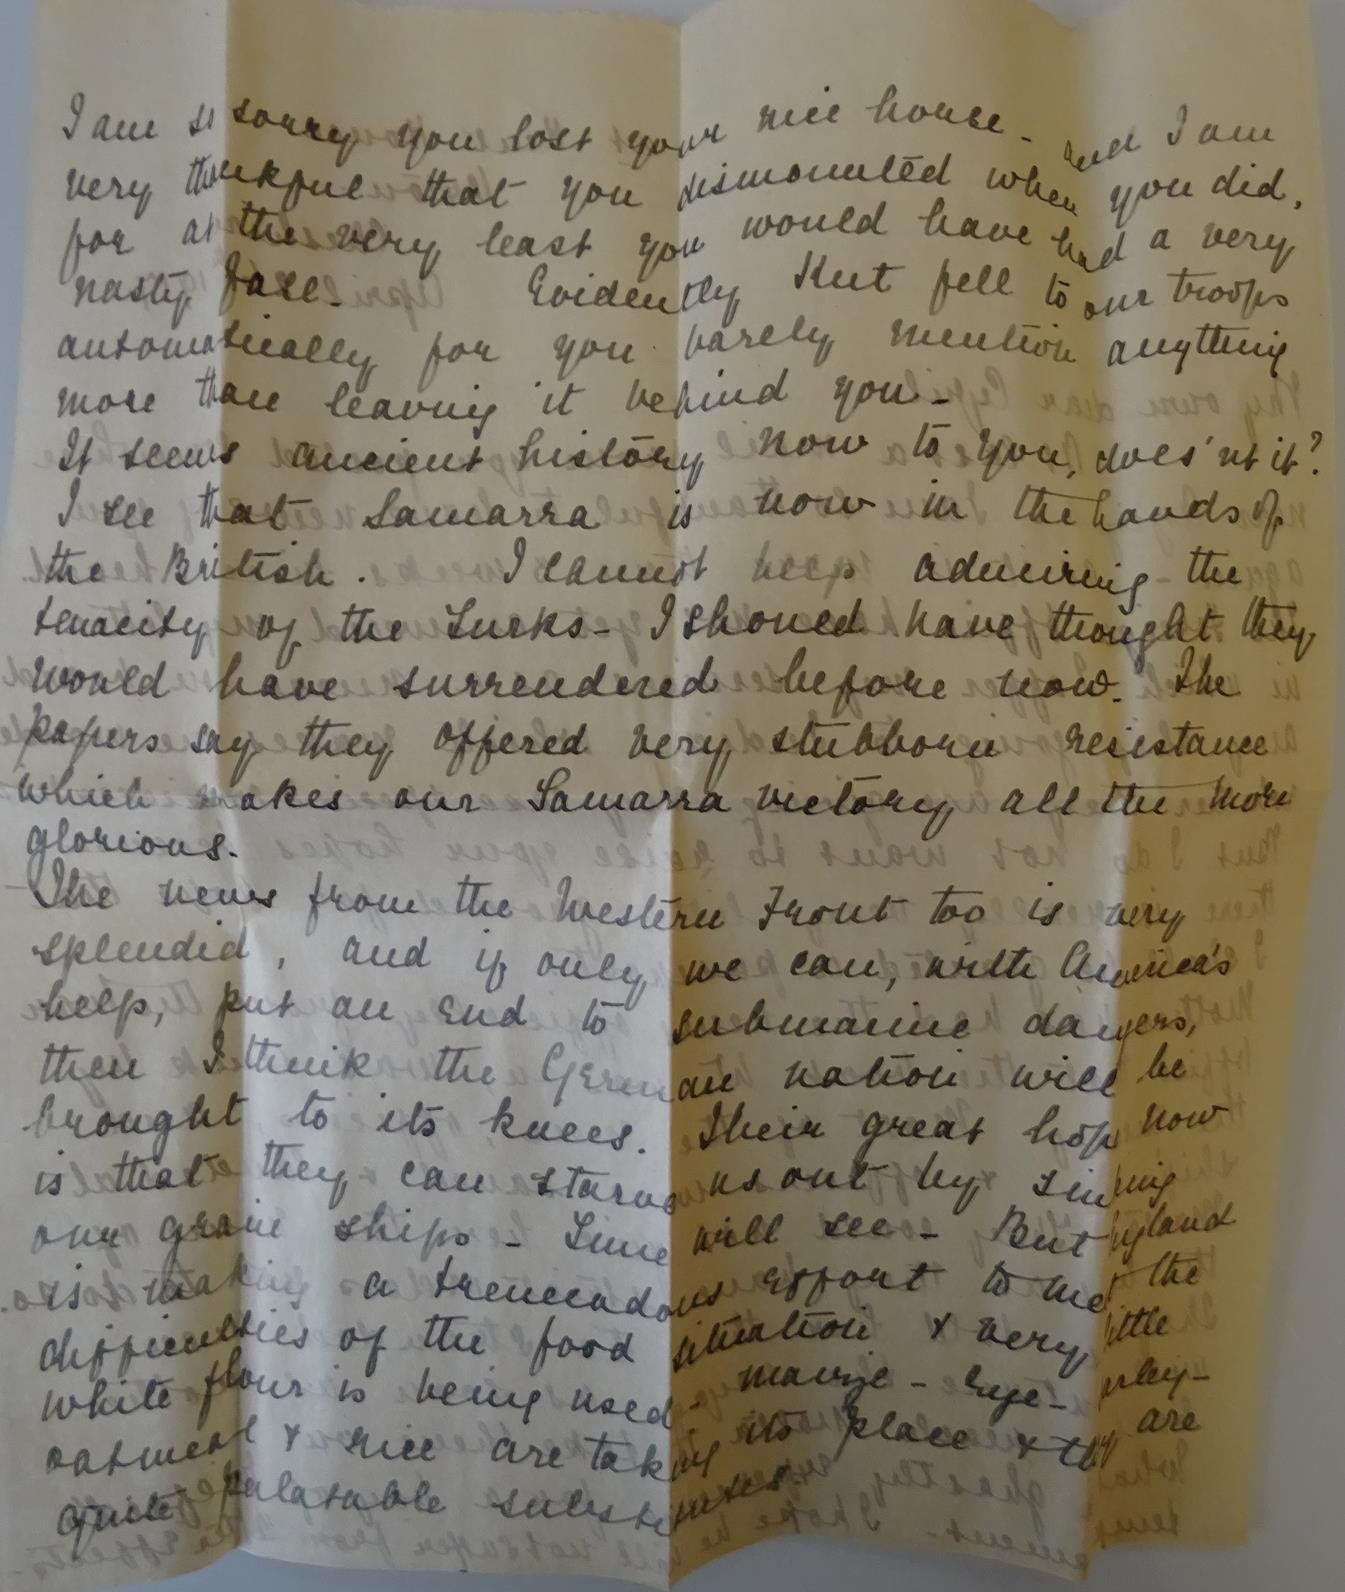 I am so sorry you lost your nice horse - and I am
very thankful that you dismounted when you did,
for at the very least you would have had a very
nasty fall. Evidently Kut fell to our troops
automatically for you barely mention anything
more than leaving it behind you -
It seems ancient history now to you, does'nt it?
I see that Samarra is now in the hands of
the British. I cannot help admiring the
tenacity of the Turks - I should have thought they
would have surrendered before now. The
papers say they offered very stubborn resistance
which makes our Samarra victory all the more
glorious.
The news from the Western Front too is very
splendid, and if only we can, with America's
help, put an end to submarine dangers,
then I think the German nation will be
brought to its knees. Their great hope now
is that they can starve us out by sinking
our grain ships - Time will see - But England
is making a tremendous effort to meet the
difficulties of the food situation & very little
white flour is being used - maize - rye - barley -
oatmeal & rice are taking its place & they are
quite palatable substitutes.